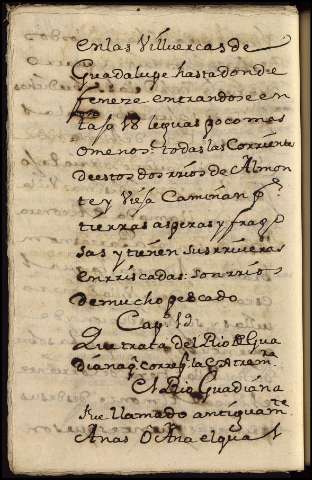 en las Villuercas de
Guadalupe hasta donde
feneze entrandose en
tajo 18 leguas poco mas
o menos: todas las Corrientes
de estos dos rios de Almon
te y Vieja Caminan pr
tierras asperas y frago
sas y tienen sus riveras
enrriscadas: son rrios
de mucho pescado
Capo 12
Que trata del Rio de Gua
diana q corre pr la extrema
El Rio Guadiana
fue llamado antiguamte
Anas O Ana el qual